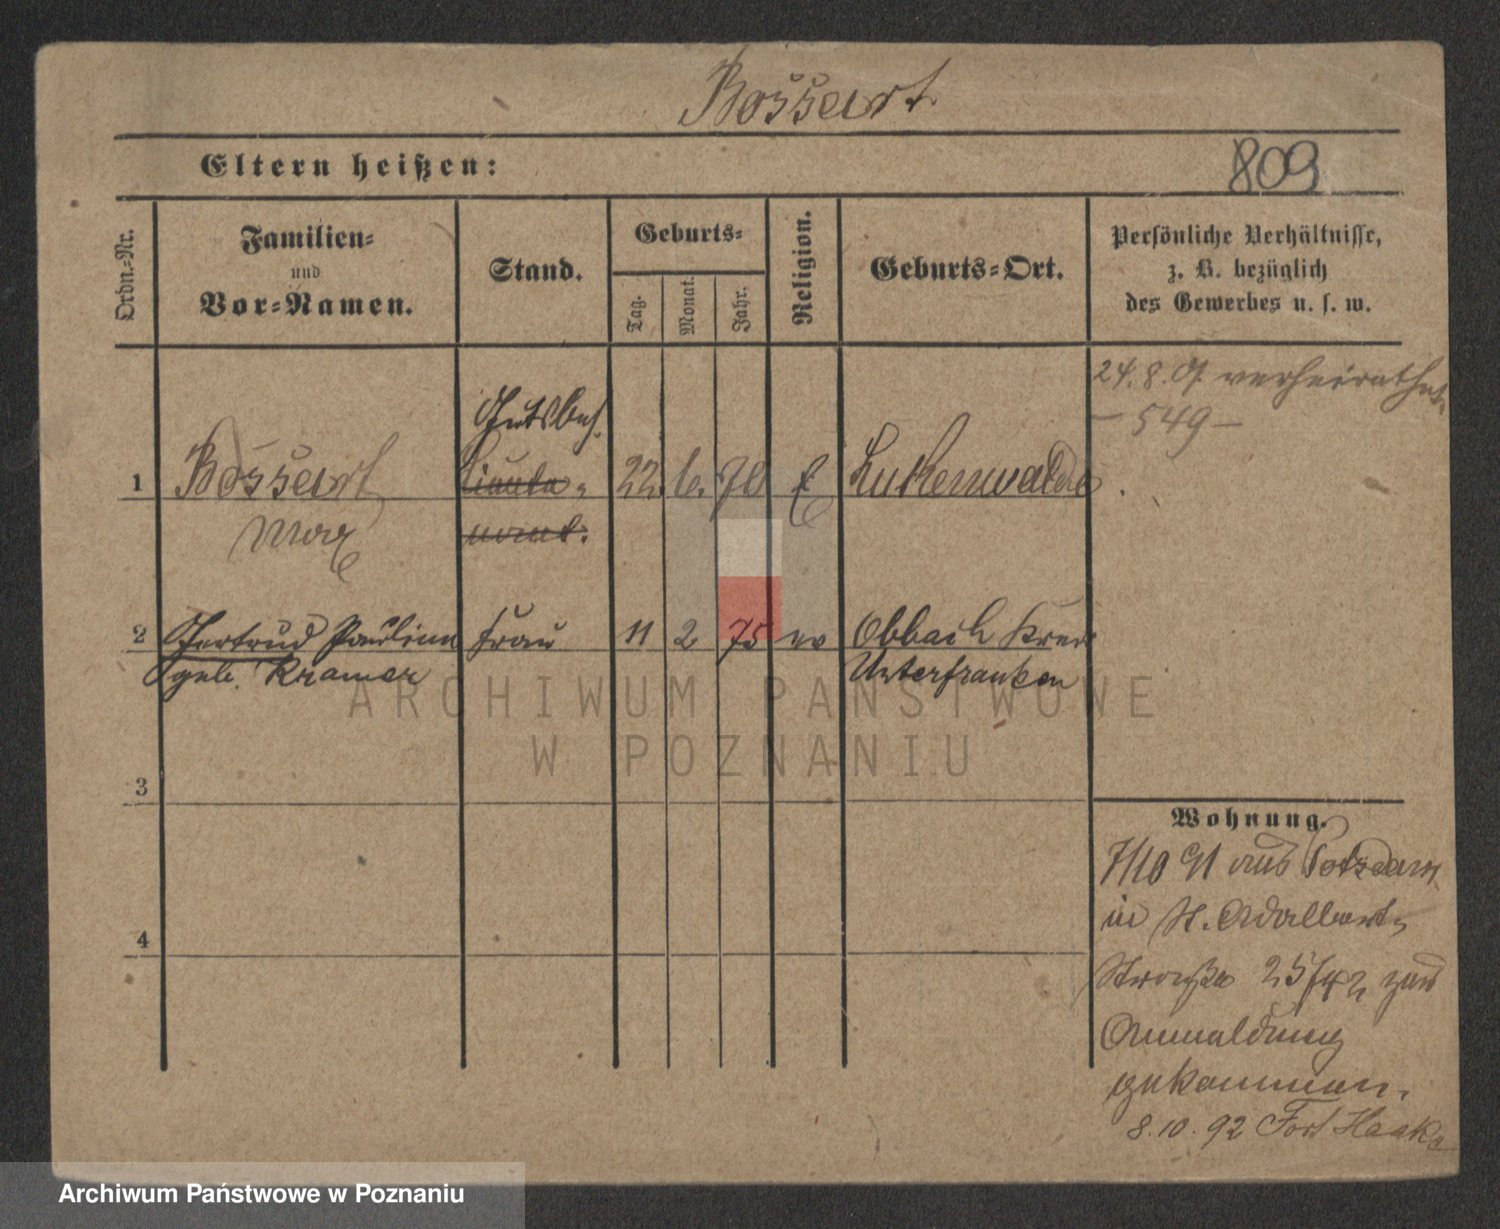 Bosseart
Eltern heißen:
809
Ordn.-Nr.
Familien-
und
Vor-Namen.
Stand.
Geburts-
Tag.
Monat.
Jahr.
Religion.
Geburts-Ort.
Persönliche Verhältnisse,
z. B. bezüglich
des Gewerbes u. s. w.
24.8.01. verheirathet
- 549 -
Gutsbes.
1 Bosseart Lieute- 22. 6. 70 E Lukenwalde.
Max nant.
2 Gertrud Pauline Frau 11 2 75 ev Obbach Kreis
geb. Kramer Unterfranken
ARCHIWUM PAŃSTWOWE
W POZNANIU
3
Wohnung.
7/10 91 aus Potsdam
in St. Adalbert-
4
Straße 25/42 zur
Anmeldung
gekommen.
8.10.92 Fort Haake
Archiwum Państwowe w Poznaniu